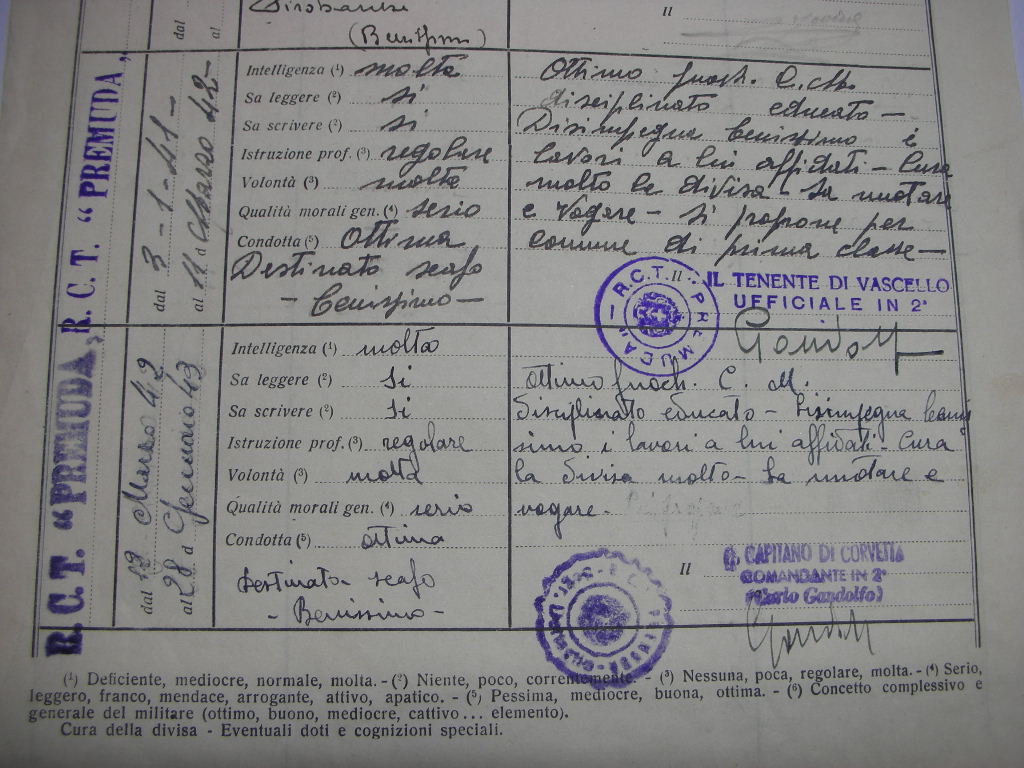 (Benissimo)
dal
al
Il
R. C. T. “ PREMUDA „
dal 3 - 1 - 41 -
al 11 Marzo 42 -
Intelligenza (¹) molta
Sa leggere (²) si
Sa scrivere (²) si
Istruzione prof. (³) regolare
Volontà (³) molta
Qualità morali gen. (⁴) serio
Condotta (⁵) Ottima
Destinato scafo
- Benissimo -
Ottimo fuoch. C. M.
disciplinato educato -
Disimpegna benissimo i
lavori a lui affidati - Cura
molto la divisa - Sa nuotare
e vogare - Si propone per
comune di prima classe -
Il
R.C.T. PREMUDA
IL TENENTE DI VASCELLO
UFFICIALE IN 2ª
Gandolf
R. C. T. “PREMUDA„
dal 12 Marzo 42
al 28 Gennaio 43
Intelligenza (¹) molta
Sa leggere (²) Si
Sa scrivere (²) Si
Istruzione prof. (³) regolare
Volontà (³) molta
Qualità morali gen. (⁴) serio
Condotta (⁵) ottima
Destinato - scafo
- Benissimo -
Ottimo fuoch. C. M.
Disciplinato educato - Disimpegna benis
simo i lavori a lui affidati - Cura
la divisa molto - Sa nuotare e
vogare -
Il
CAPITANO DI CORVETTA
COMANDANTE IN 2ª
(Carlo Gandolfo)
(¹) Deficiente, mediocre, normale, molta. - (²) Niente, poco, correntemente. - (³) Nessuna, poca, regolare, molta. - (⁴) Serio,
leggero, franco, mendace, arrogante, attivo, apatico. - (⁵) Pessima, mediocre, buona, ottima. - (⁶) Concetto complessivo e
generale del militare (ottimo, buono, mediocre, cattivo... elemento).
Cura della divisa - Eventuali doti e cognizioni speciali.